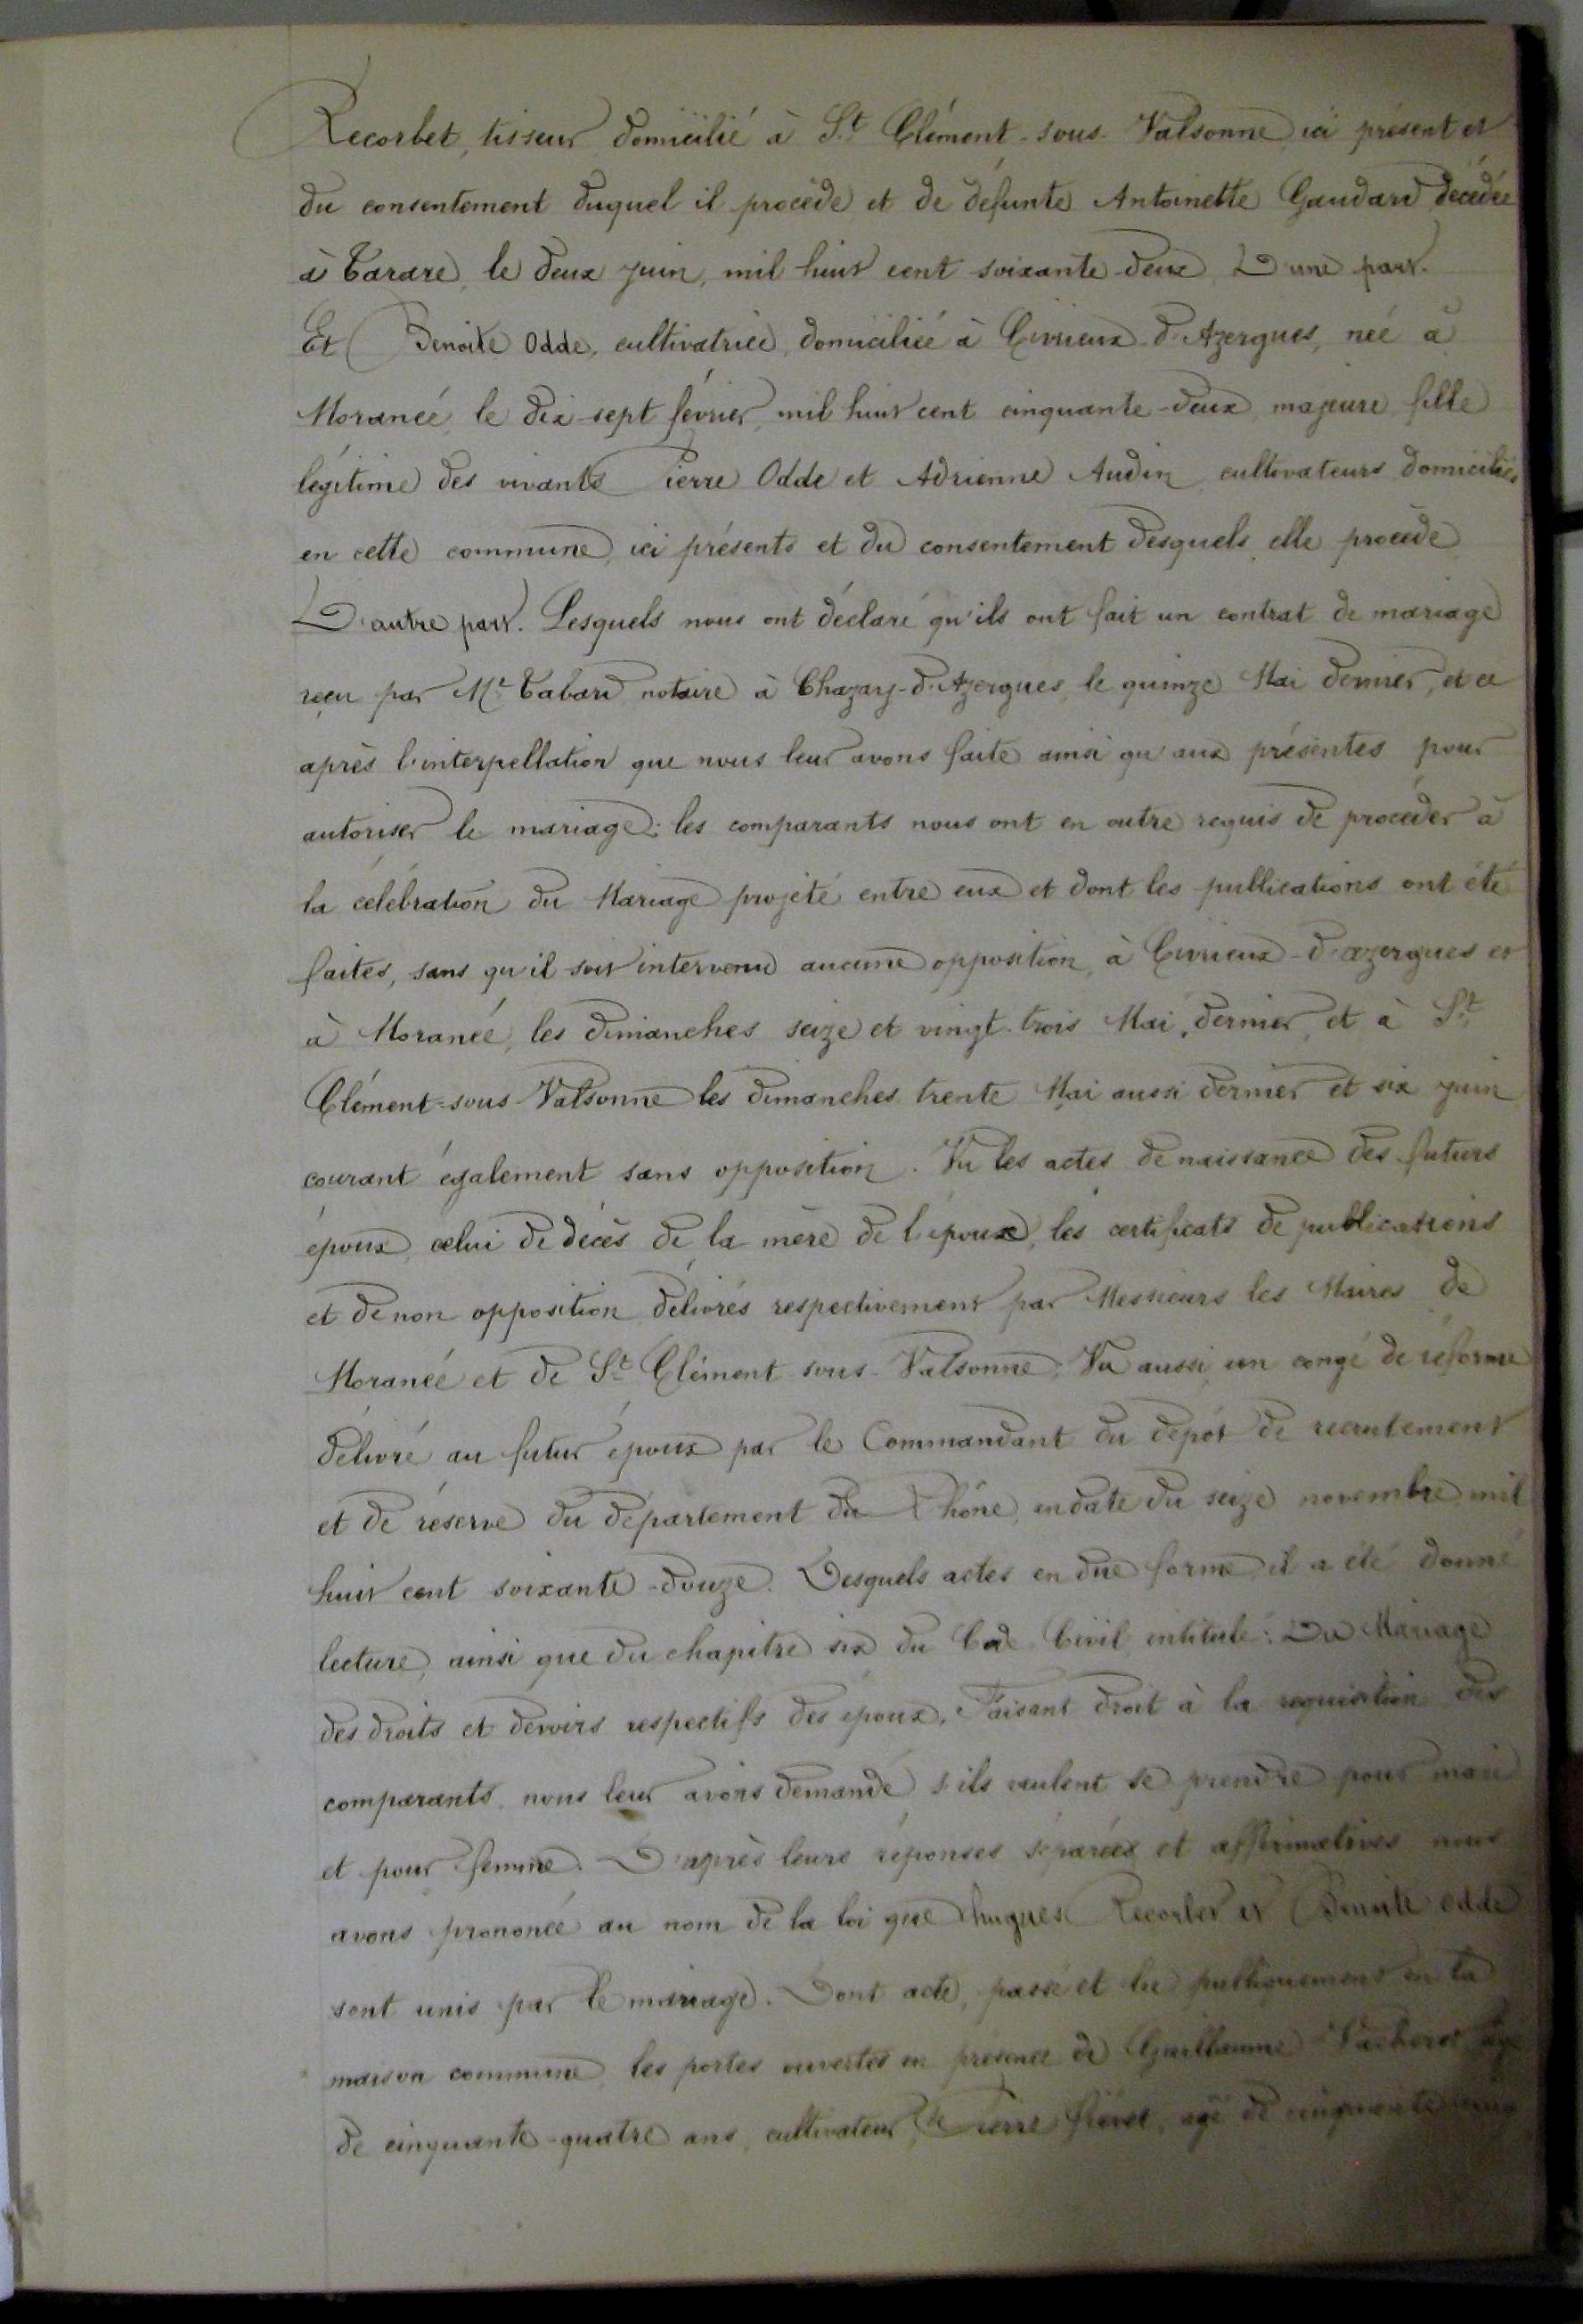 Recorbet, tisseur domicilié à St Clément-sous-Valsonne ici présent et
du consentement duquel il procède et de défunte Antoinette Gaudard décédée
à Tarare, le deux juin, mil huit cent soixante-deux D'une part.
Et Benoite Odde, cultivatrice, domiciliée à Civrieux-d'Azergues, née à
Morancé, le dix-sept février, mil huit cent cinquante-deux, majeure, fille
légitime des vivants Pierre Odde et Adrienne Audin, cultivateurs domiciliés
en cette commune, ici présents et du consentement desquels elle procède
D'autre part. Lesquels nous ont déclaré qu'ils ont fait un contrat de mariage
reçu par Me Tabard notaire à Chazay-d'Azergues, le quinze Mai dernier, et ce
après l'interpellation que nous leur avons faite ainsi qu'aux présentes pour
autoriser le mariage; les comparants nous ont en outre requis de procéder à
la célébration du Mariage projeté entre eux et dont les publications ont été
faites, sans qu'il soit intervenu aucune opposition, à Civrieux-d'azergues et
à Morancé, les dimanches seize et vingt-trois Mai dernier, et à St
Clément-sous-Valsonne les dimanches trente Mai aussi dernier et six juin
courant également sans opposition. Vu les actes de naissance des futurs
époux, celui de décès de la mère de l'époux, les certificats de publications
et de non opposition délivrés respectivement par Messieurs les Maires de
Morancé et de St Clément-sous-Valsonne; Vu aussi un congé de réforme
délivré au futur époux par le Commandant du dépôt de recrutement
et de réserve du département du Rhône, en date du seize novembre mil
huit cent soixante-douze. Desquels actes en due forme, il a été donné
lecture, ainsi que du chapitre six du Code Civil intitulé: Du Mariage
des droits et devoirs respectifs des époux. Faisant droit à la requisition des
comparants, nous leur avons demandé s'ils veulent se prendre pour mari
et pour femme. D'après leurs réponses séparées et affirmatives nous
avons prononcé au nom de la loi que hugues Recorbet et Benoite odde
sont unis par le mariage. Dont acte, passé et lu publiquement en la
maison commune, les portes ouvertes en présence de Guillaume âgé
de cinquante-quatre ans, cultivateur, de Pierre âgé de cinquante